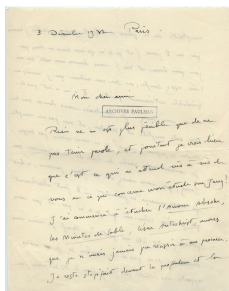 3 Décembre 19 Paris
Mon cher ami
ARCHIVES PAULHAN
Rien ne m'est plus pénible que de ne
pas tenir parole, et pourtant je crois bien
que c'est ce qui m'attend vis à vis de
vous en ce qui concerne mon étude sur Jarry.
J'ai commencé à attaquer l'Amour absolu,
les Minutes de Sable, César Antéchrist, mais
que je n'aurai jamais
Je reste stupéfait devant la et la